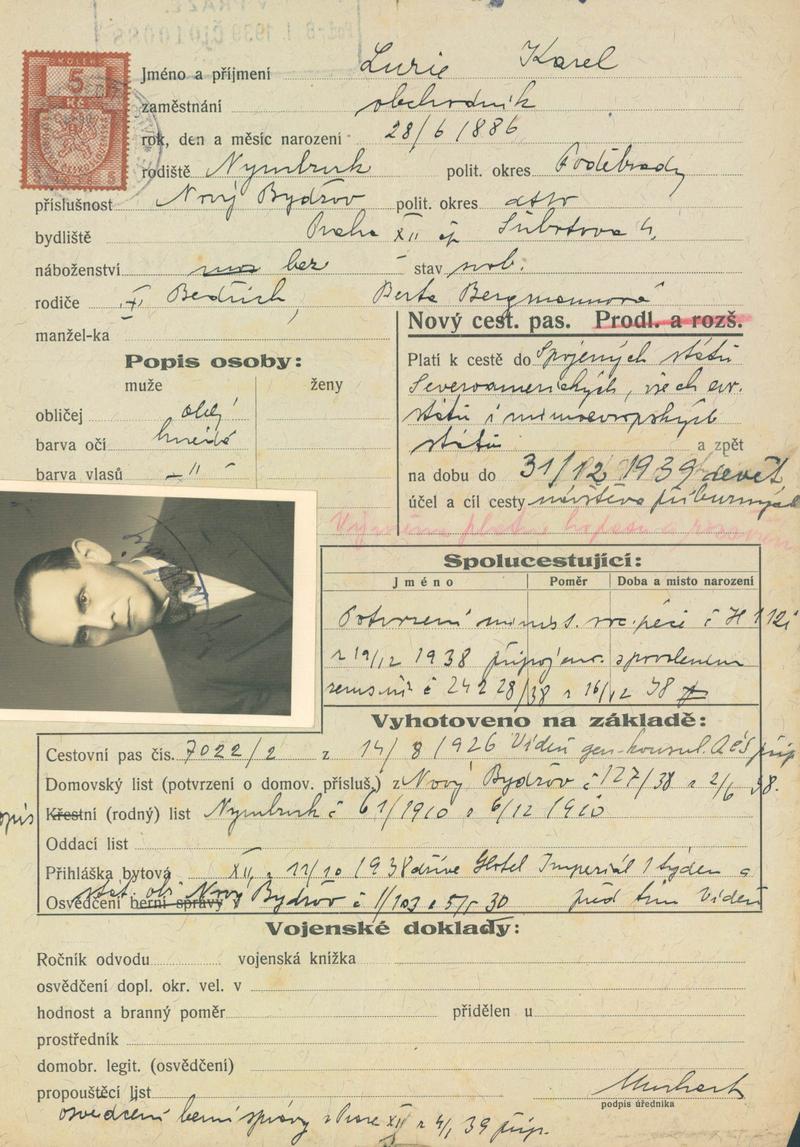 V PRAZE.
8. I. 1939 ČJ010088
KOLEK
5
Kč
Jméno a příjmení Lurie Karel
zaměstnání obchodník
rok, den a měsíc narození 28/6 1886
rodiště Nymburk polit. okres Poděbrady
příslušnost Nový Bydžov polit. okres dtto
bydliště Praha XII čp Subotova 4,
náboženství bez stav svob.
rodiče Bedřich, Berta Bergmannová
manžel-ka
Nový cest. pas. Prodl. a rozš.
Popis osoby:
muže ženy
obličej obly
barva očí hnědé
barva vlasů —"—
Platí k cestě do Spojených států
Severoamerických, všech evr.
států i mimoevropských
států a zpět
na dobu do 31/12 1939 devět
účel a cíl cesty návštěva příbuzných
Spolucestující:
Jméno Poměr Doba a místo narození
Potvrzení minist. soc. péče č H 112i
z 19/12 1938 připojeno. s povolením
č 242 28/38 z 16/12 38
Vyhotoveno na základě:
Cestovní pas čís. 7022/2 z 14/8/1926 Vídeň gen. konsul. RČS příp
Domovský list (potvrzení o domov. přísluš.) z Nový Bydžov č 127/38 z 2/6 38.
opis Křestní (rodný) list Nymburk č 61/1910 z 6/12 1910
Oddací list
Přihláška bytová XII, z 11/10 1938 dříve Hotel Imperiál 1 týden a
stát. ob. Nový Bydžov č 1/103 z 5/5 30 před tím Vídeň
Osvědčení berní správy v
Vojenské doklady:
Ročník odvodu vojenská knížka
osvědčení dopl. okr. vel. v
hodnost a branný poměr přidělen u
prostředník
domobr. legit. (osvědčení)
propouštěcí list
podpis úředníka
osvědčení berní správy v Praze XII z 4/1 39 příp.